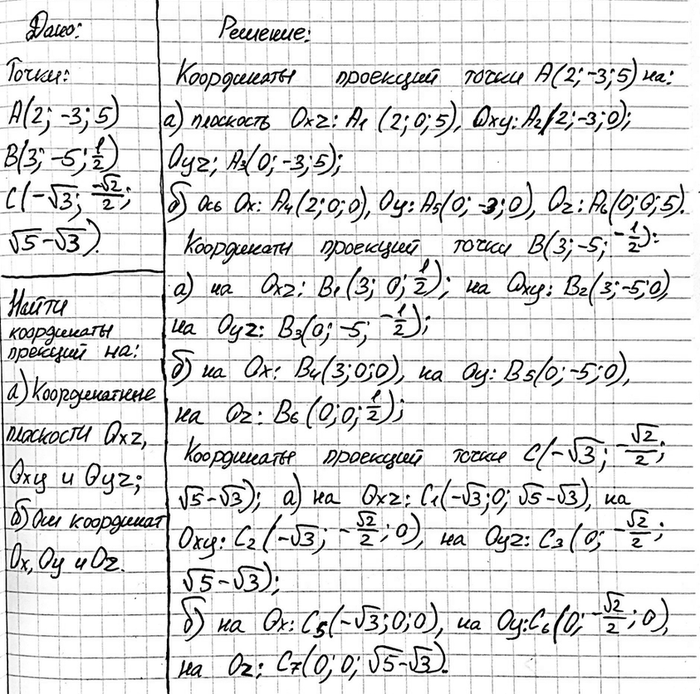 Дано:
Точки:
A(2; -3; 5)
B(3; -5; 1/2)
C(-√3; -√2/2;
√5-√3).
Найти
координаты
прекций на:
а) Координатные
плоскости Oxz,
Oxy и Oyz;
б) Оси координат
Ox, Oy и Oz.
Решение:
Координаты проекций точки A(2; -3; 5) на:
а) плоскость Oxz: A1 (2; 0; 5), Oxy: A2(2; -3; 0);
Oyz; A3(0; -3; 5);
б) Ось Ox: A4(2; 0; 0), Oy: A5(0; -3; 0), Oz: A6(0; 0; 5).
Координаты проекций точки B(3; -5; -1/2):
а) на Oxz: B1(3; 0; 1/2); на Oxy: B2(3; -5; 0),
на Oyz: B3(0; -5; -1/2);
б) на Ox: B4(3; 0; 0), на Oy: B5(0; -5; 0),
на Oz: B6 (0; 0; 1/2);
Координаты проекций точки C(-√3; -√2/2;
√5-√3); а) на Oxz: C1(-√3; 0; √5-√3), на
Oxy: C2(-√3; -√2/2; 0), на Oyz: C3(0; -√2/2;
√5-√3);
б) на Ox: C5(-√3; 0; 0), на Oy: C6(0; -√2/2; 0),
на Oz: C7(0; 0; √5-√3).